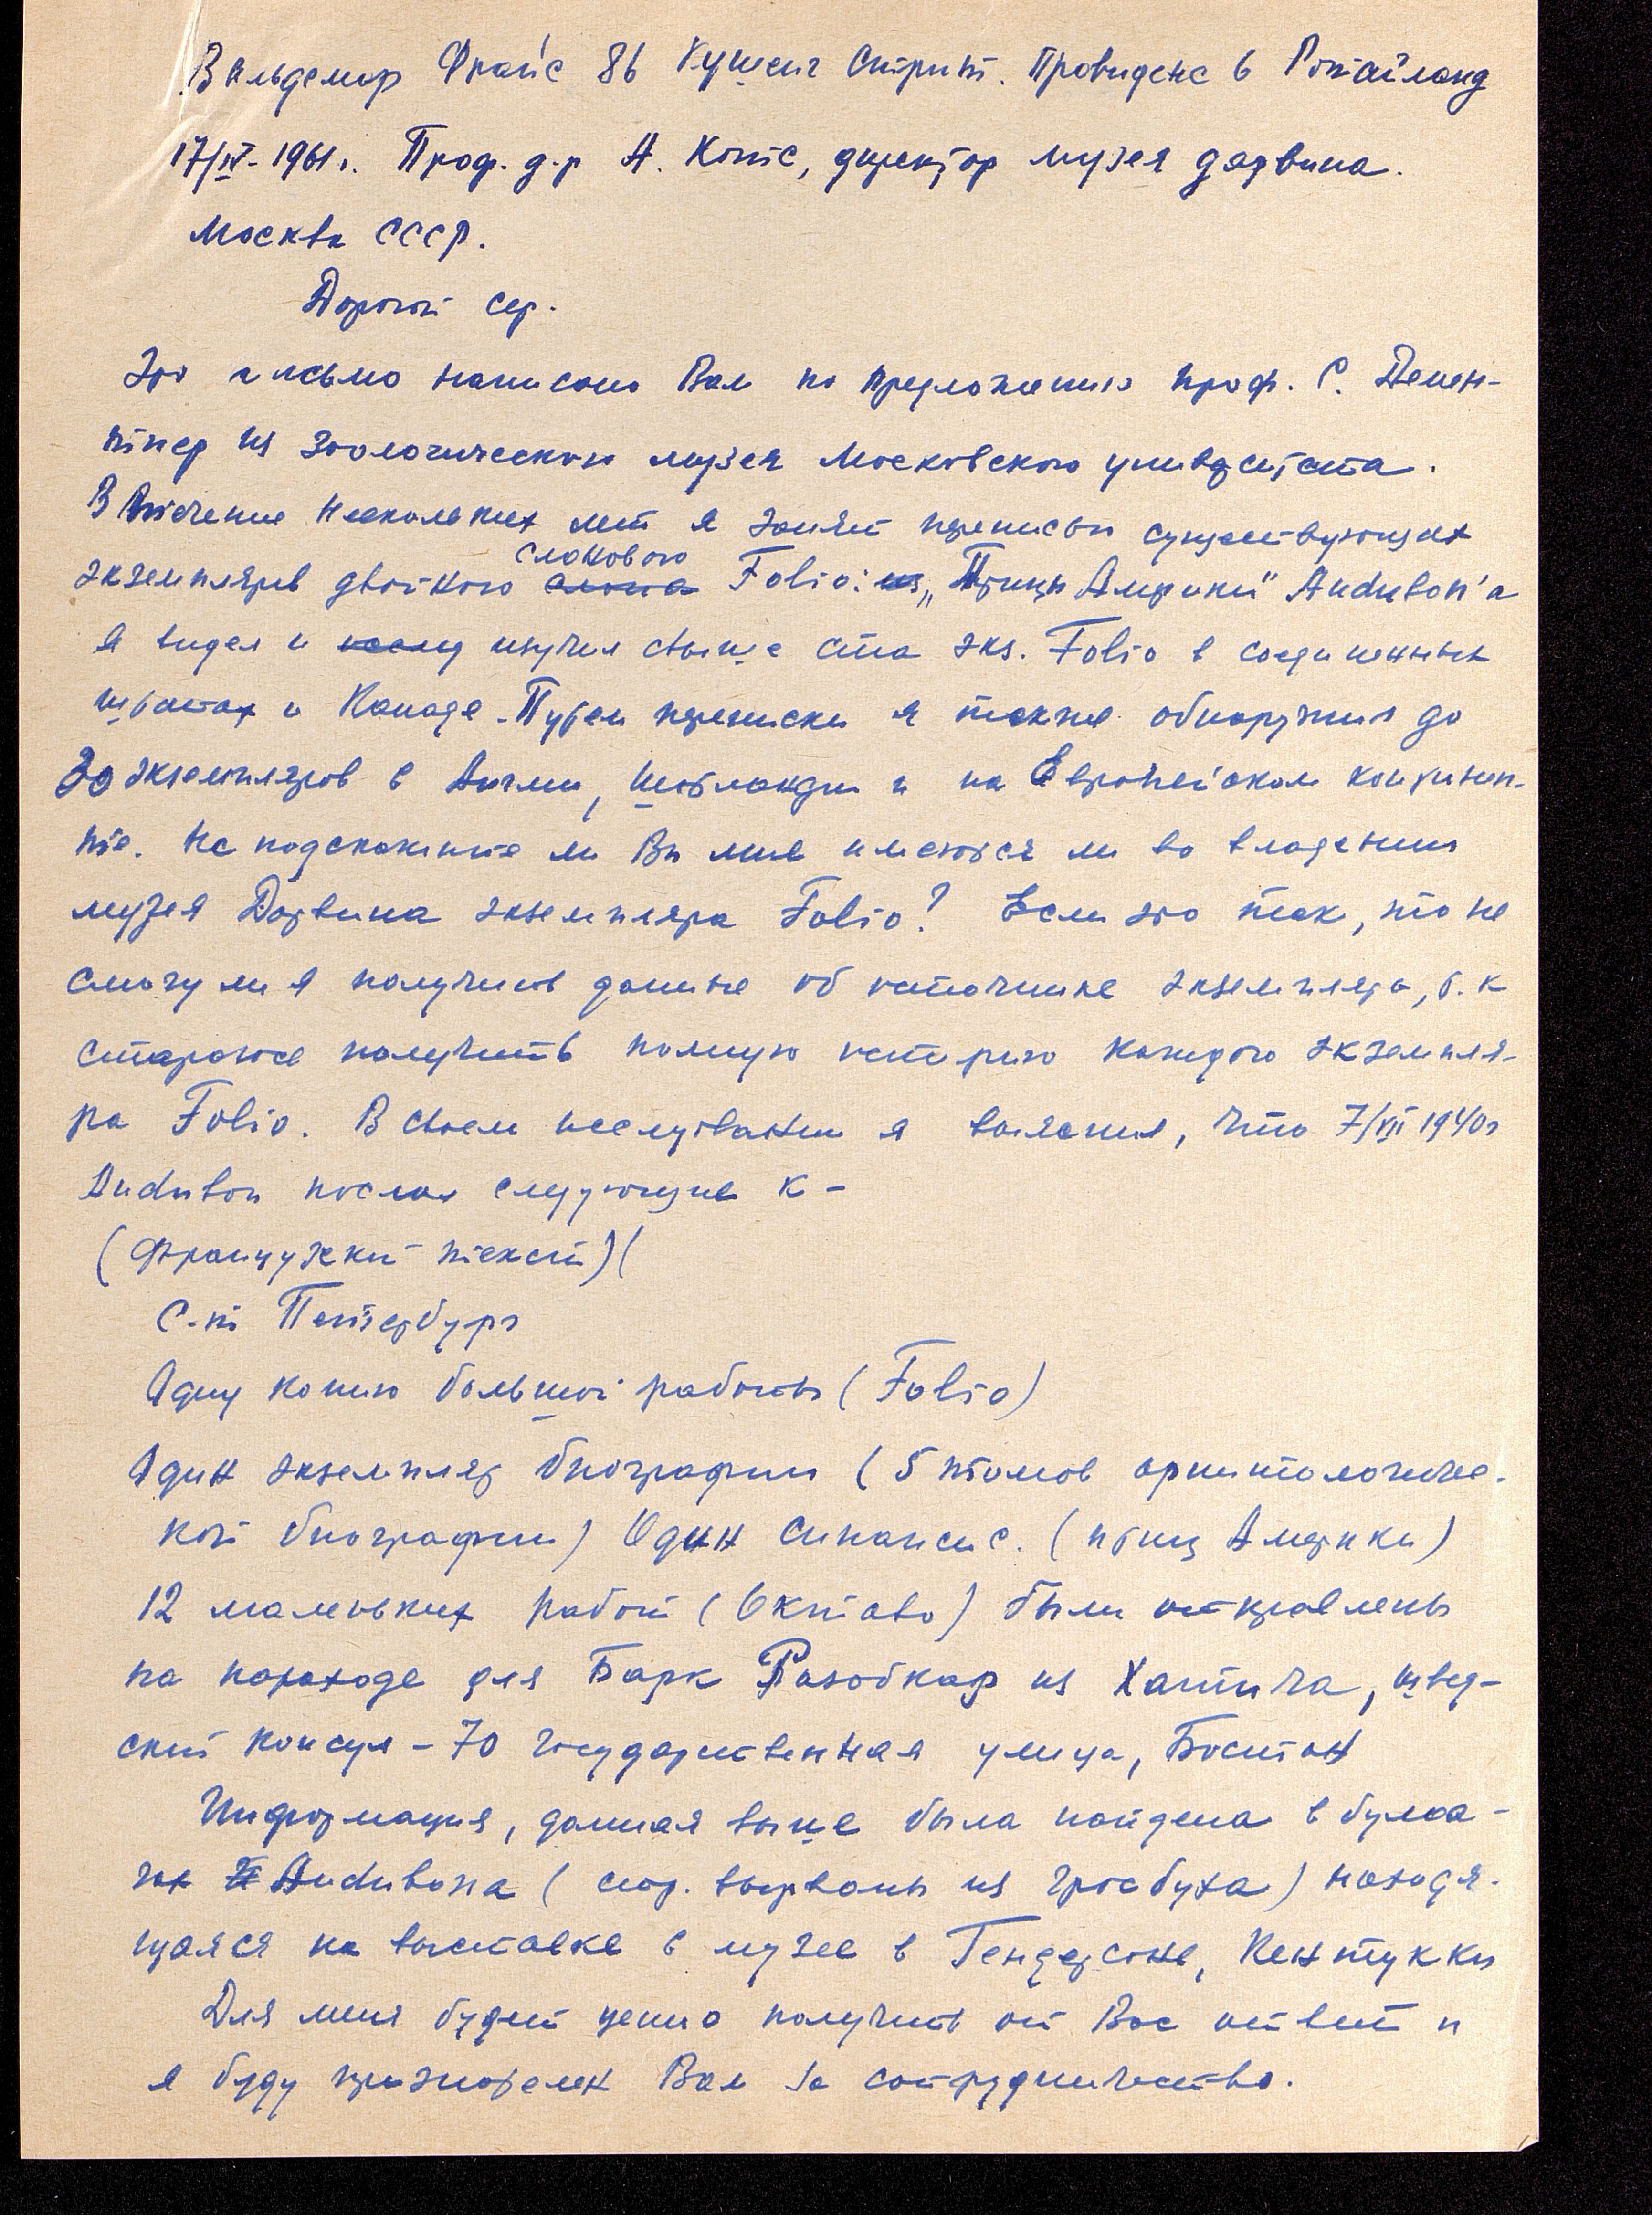 Вальдемар Фрайс 86 Кушенг Стрит. Провиденс 6 Ротайланд
17/IV-1961г. Проф. д-р А. Котс, директор музея дарвина.
Москва СССР.
Дорогой сер.
Это письмо написано Вам по предложению проф. С. Демен-
тьер из Зоологического музея Московского университета.
В течение нескольких лет я занят переписью существующих
экземпляров двойного слонового слона Folio: из „Птицы Америки" Audubon'а
Я видел и исслед изучил свыше ста экз. Folio в соединенных
штатах и Канаде. Путем переписки я также обнаружил до
30 экземпляров в Англии, Шотландии и на Европейском континен-
те. Не подскажите ли Вы мне имеются ли во владении
музея Дарвина экземпляра Folio? Если это так, то не
смогу ли я получить данные об источнике экземпляра, т.к
стараюсь получить полную историю каждого экземпля-
ра Folio. В своем исследовании я выяснил, что 7/VII 1940г
Audubon послал следующие к -
(Французский текст)(
С.т Петербург
Одну копию большой работы (Folio)
Один экземпляр биографии (5 томов орнитологиче-
кой биографии) Один Синопсис. (птиц Америки)
12 маленьких работ (Октаво) были отправлены
на пароходе для Барк Разобкар из Хатича, швед-
ский консул - 70 государственная улица, Бостон
Информация, данная выше была найдена в бума-
гах Audubona (стр. вырваны из гросбуха) находя-
щаяся на выставке в музее в Гендерсоне, Кентукки
Для меня будет ценно получить от Вас ответ и
я буду признателен Вам за сотрудничество.